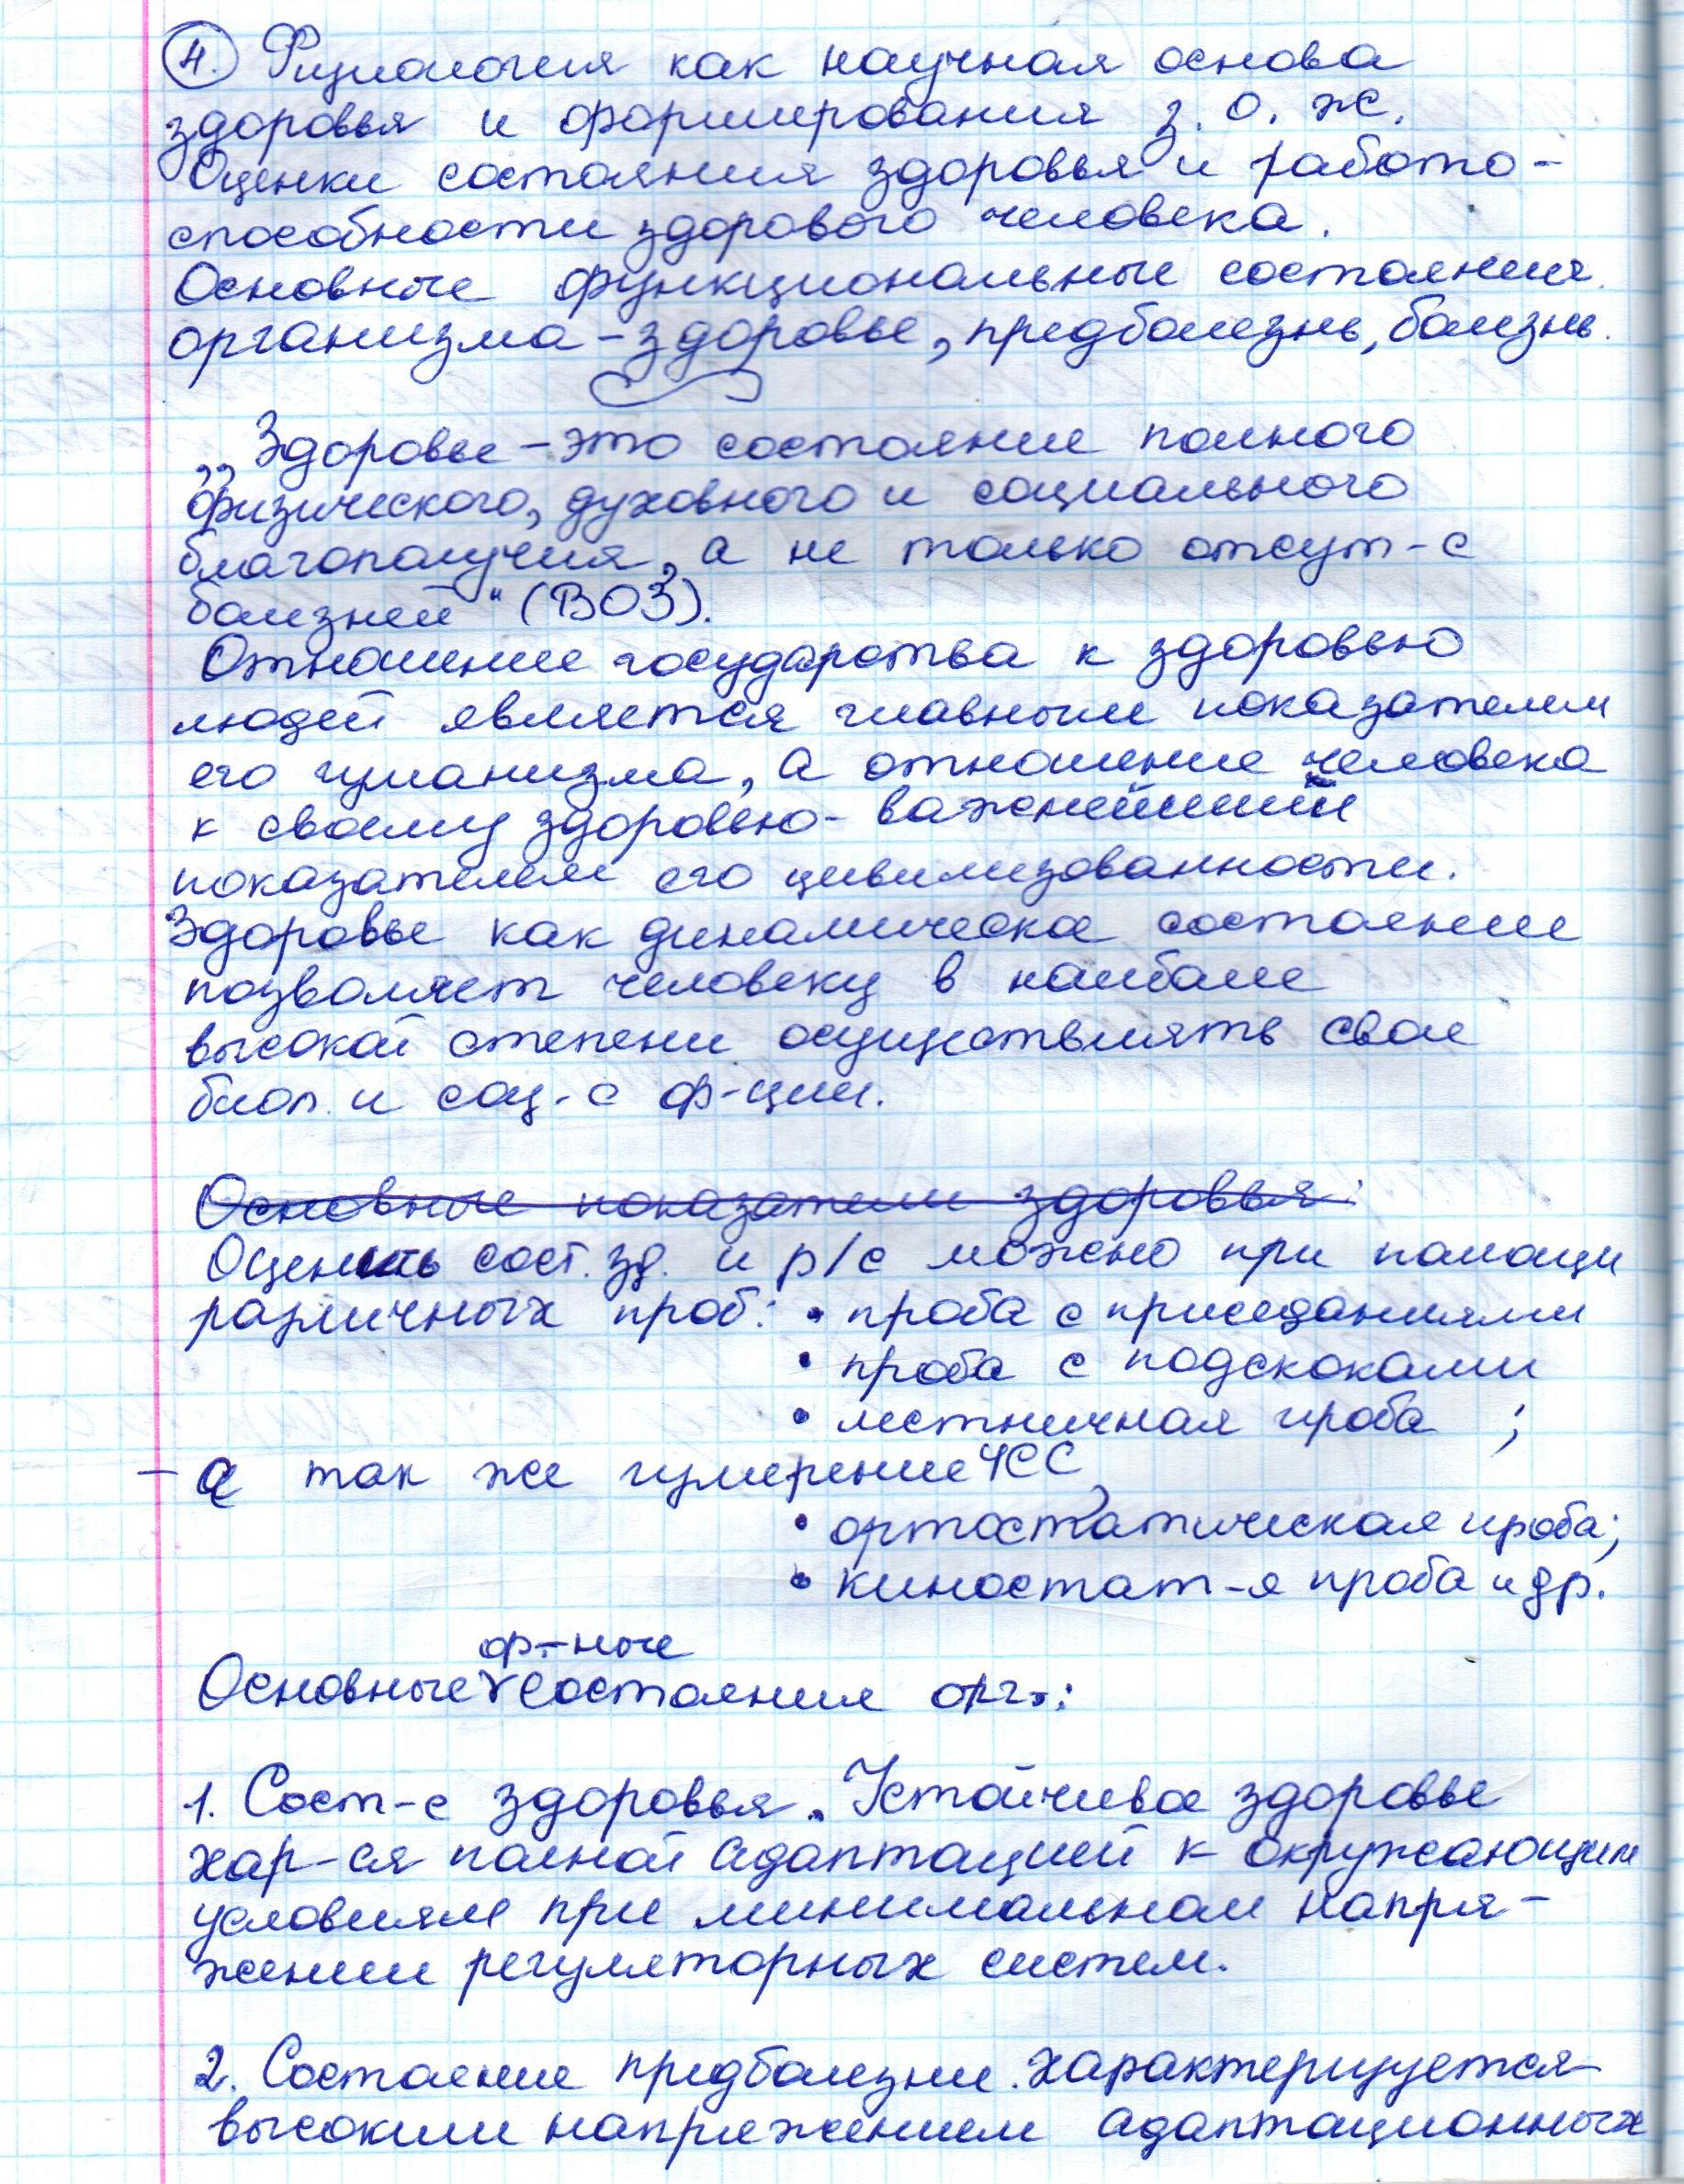 4. Физиология как научная основа
здоровья и формирования з. о. ж.
Оценки состояния здоровья и работо-
способности здорового человека.
Основные функциональные состояния
организма - здоровье, предболезнь, болезнь.
„Здоровье - это состояние полного
физического, духовного и социального
благополучия, а не только отсут-е
болезней" (ВОЗ).
Отношение государства к здоровью
людей является главным показателем
его гуманизма, а отношение человека
к своему здоровью - важнейший
показателем его цивилизованности.
Здоровье как динамическое состояние
позволяет человеку в наиболее
высокой степени осуществлять свои
биол. и соц-е ф-ции.
Основные показатели здоровья:
Оценить сост. зд. и р/с можно при помощи
различных проб: • проба с приседаниями
• проба с подскоками
• лестничная проба ;
- а так же измерение ЧСС,
• ортостатическая проба;
• киностат-я проба и др.
ф-ные
Основные состояния орг.:
1. Сост-е здоровья. Устойчивое здоровье
хар-ся полной адаптацией к окружающим
условиям при минимальном напря-
жении регуляторных систем.
2. Состояние предболезни. Характеризуется
высоким напряжением адаптационных